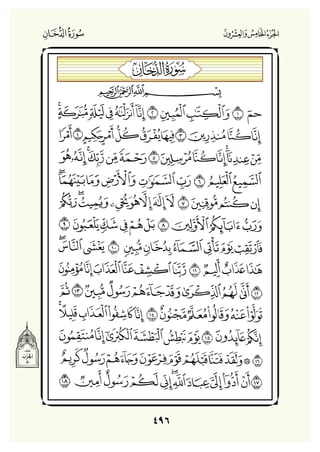 الجزء الخامس والعشرون
سورة الدخان
سورة الدخان
بسم الله الرحمن الرحيم
حمٓ ١ وَٱلْكِتَٰبِ ٱلْمُبِينِ ٢ إِنَّآ أَنزَلْنَٰهُ فِى لَيْلَةٍ مُّبَٰرَكَةٍ ۚ
إِنَّا كُنَّا مُنذِرِينَ ٣ فِيهَا يُفْرَقُ كُلُّ أَمْرٍ حَكِيمٍ ٤ أَمْرًا
مِّنْ عِندِنَآ ۚ إِنَّا كُنَّا مُرْسِلِينَ ٥ رَحْمَةً مِّن رَّبِّكَ ۚ إِنَّهُۥ هُوَ
ٱلسَّمِيعُ ٱلْعَلِيمُ ٦ رَبِّ ٱلسَّمَٰوَٰتِ وَٱلْأَرْضِ وَمَا بَيْنَهُمَآ ۖ
إِن كُنتُم مُّوقِنِينَ ٧ لَآ إِلَٰهَ إِلَّا هُوَ يُحْىِۦ وَيُمِيتُ ۖ رَبُّكُمْ
وَرَبُّ ءَابَآئِكُمُ ٱلْأَوَّلِينَ ٨ بَلْ هُمْ فِى شَكٍّ يَلْعَبُونَ ٩
فَٱرْتَقِبْ يَوْمَ تَأْتِى ٱلسَّمَآءُ بِدُخَانٍ مُّبِينٍ ١٠ يَغْشَى ٱلنَّاسَ ۖ
هَٰذَا عَذَابٌ أَلِيمٌ ١١ رَّبَّنَا ٱكْشِفْ عَنَّا ٱلْعَذَابَ إِنَّا مُؤْمِنُونَ
١٢ أَنَّىٰ لَهُمُ ٱلذِّكْرَىٰ وَقَدْ جَآءَهُمْ رَسُولٌ مُّبِينٌ ١٣ ثُمَّ
تَوَلَّوْا۟ عَنْهُ وَقَالُوا۟ مُعَلَّمٌ مَّجْنُونٌ ١٤ إِنَّا كَاشِفُوا۟ ٱلْعَذَابِ قَلِيلًا ۚ
إِنَّكُمْ عَآئِدُونَ ١٥ يَوْمَ نَبْطِشُ ٱلْبَطْشَةَ ٱلْكُبْرَىٰٓ إِنَّا مُنتَقِمُونَ
١٦ ۞ وَلَقَدْ فَتَنَّا قَبْلَهُمْ قَوْمَ فِرْعَوْنَ وَجَآءَهُمْ رَسُولٌ كَرِيمٌ
١٧ أَنْ أَدُّوٓا۟ إِلَىَّ عِبَادَ ٱللَّهِ ۖ إِنِّى لَكُمْ رَسُولٌ أَمِينٌ ١٨
٤٩٦